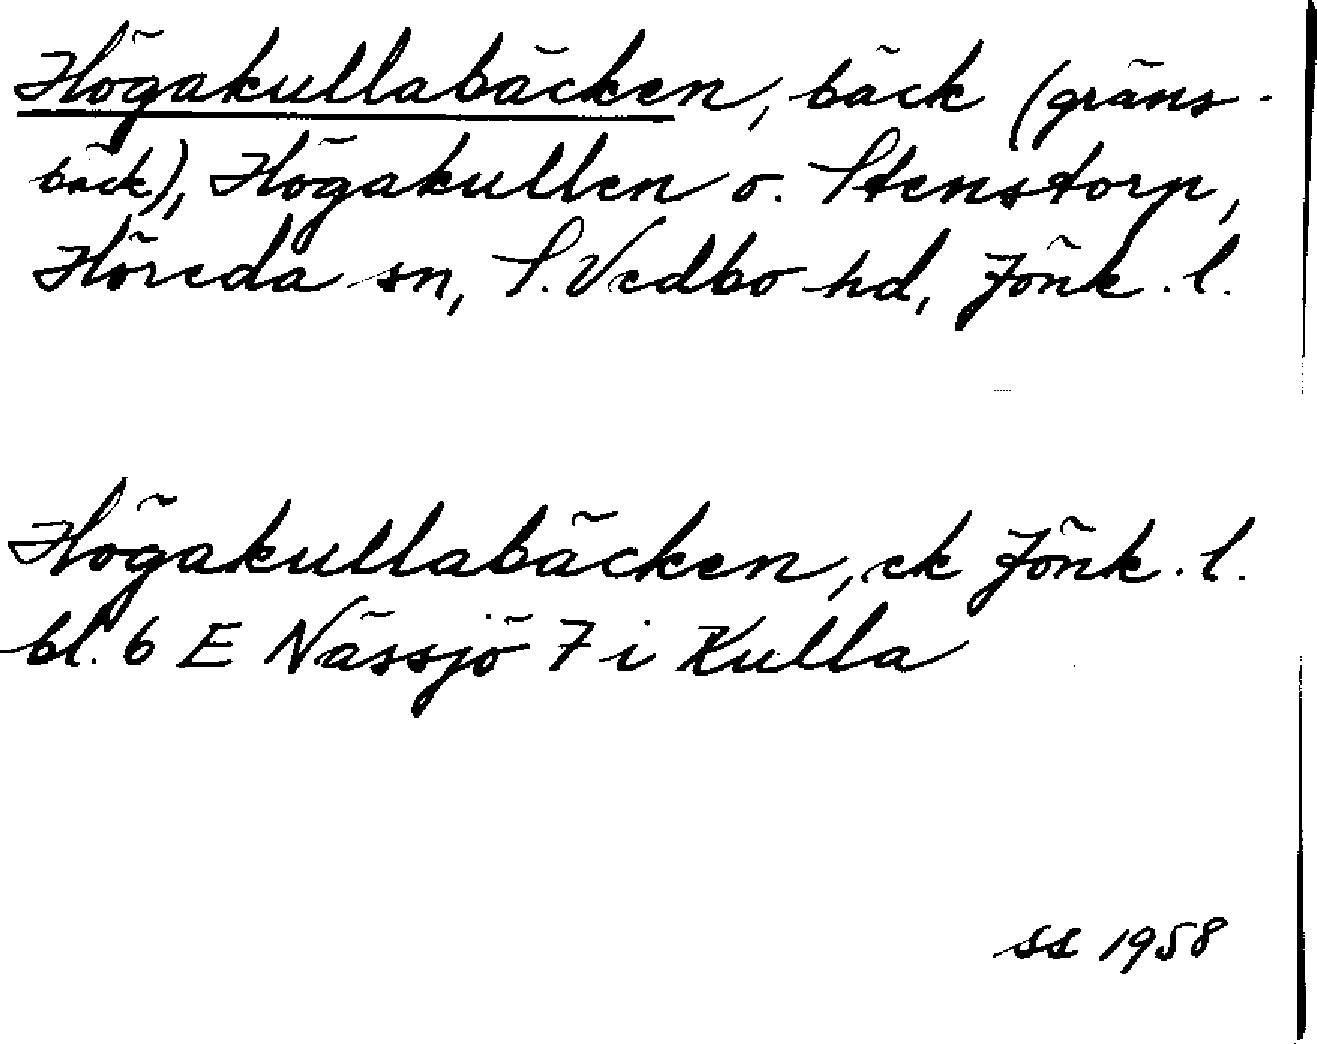 Högakullabäcken, bäck (gräns-
bäck), Högakullen o. Stenstorp,
Höreda sn, S. Vedbo hd, Jönk. l.
Högakullabäcken, ek Jönk. l.
bl. 6 E Nässjö 7 i Kulla
SS 1958